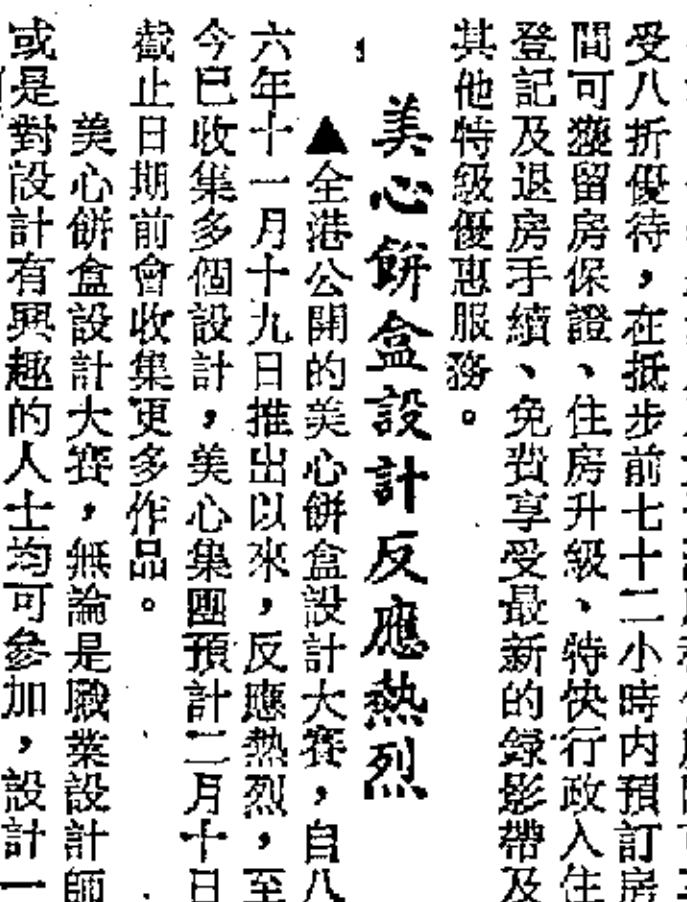 受八折優待，在抵步前七十二小時内預訂房
間可獲留房保證、住房升級、特快行政入住
登記及退房手續、免費享受最新的錄影帶及
其他特級優惠服務。
美心餅盒設計反應熱烈
▲全港公開的美心餅盒設計大賽，自八
六年十一月十九日推出以來，反應熱烈，至
今已收集多個設計，美心集團預計二月十日
截止日期前會收集更多作品。
美心餅盒設計大賽，無論是職業設計師
或是對設計有興趣的人士均可參加，設計一